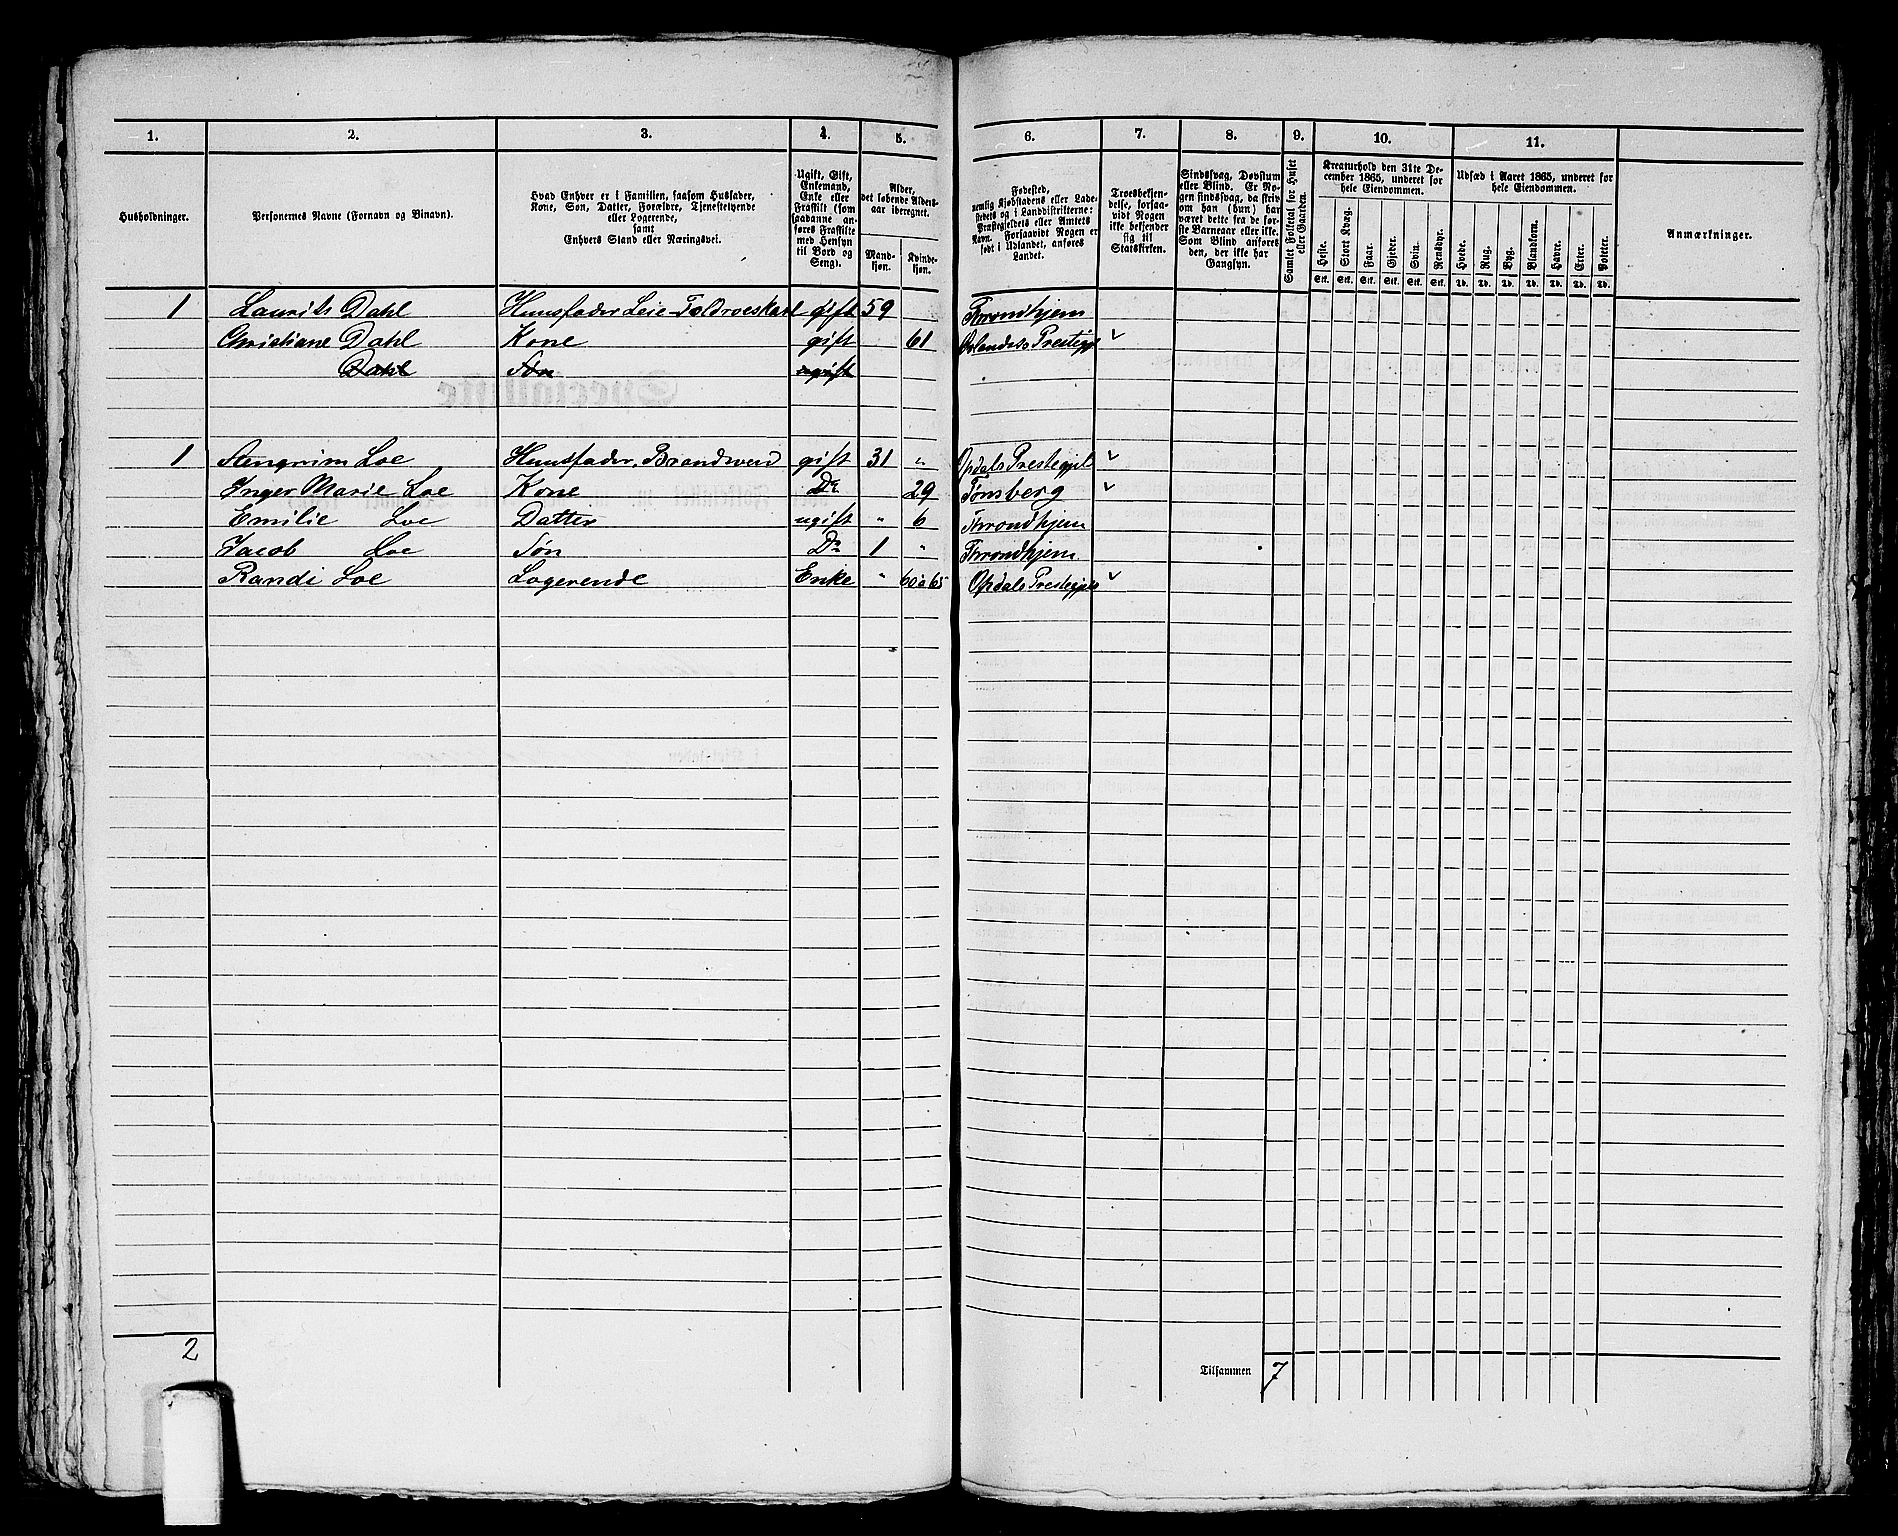 1. 2. 3. 4. 5. 6. 7. 8. 9. 10. 11.
Husholdninger.
Personernes Navne (Fornavn og Binavn).
Hvad Enhver er i Familien, saasom Husfader,
Kone, Søn, Datter, Forældre, Tjenestetyende
eller Logerende,
samt
Enhvers Stand eller Næringsvei.
Ugift, Gift,
Enkemand,
Enke eller
Fraskilt (som
saadanne an-
føres Fraskilte
med Hensyn
til Bord og
Seng).
Alder,
det løbende Alders-
aar iberegnet.
Mand-
kjøn.
Kvinde-
kjøn.
Fødested,
nemlig Kjøbstadens eller Lade-
stedets og i Landdistrikterne:
Præstegjeldets eller Amtets
Navn. Forsaavidt Nogen er
født i Udlandet, anføres
Landet.
Troesbekjen-
delse, forsaa-
vidt Nogen
ikke bekjender
sig til
Statskirken.
Sindssvag, Døvstum
eller Blind. Er No-
gen sindssvag, da skriv
om han (hun) har
været dette fra de før-
ste Barneaar eller ikke.
Som Blind anføres
den, der ikke har
Gangsyn.
Samlet Folketal for Huset
eller Gaarden.
Kreaturhold den 31te De-
cember 1865, underet for
hele Eiendommen.
Heste. Stort Kvæg. Faar. Gjeder. Svin. Rensdyr.
Stk. Stk. Stk. Stk. Stk. Stk.
Udsæd i Aaret 1865, underet for
hele Eiendommen.
Hvede. Rug. Byg. Blandkorn. Havre. Erter. Poteter.
Td. Td. Td. Td. Td. Td. Td.
Anmærkninger.
1 Laurits Dahl Huusfader Leie-Toldroeskarl gift 59 Throndhjem
Christiane Dahl Kone gift 61 Ørlandets Prestigjel
Dahl Søn ugift
1 Stengrim Loe Huusfader, Brandvend gift 31 " Opdals Prestegjel
Inger Marie Loe Kone Do 29 Tønsberg
Emilie Loe Datter ugift " 6 Throndhjem
Jacob Loe Søn Do 1 " Throndhjem
Randi Loe Logerende Enke " 60 a 65 Opdals Prestegjel
2
Tilsammen 7